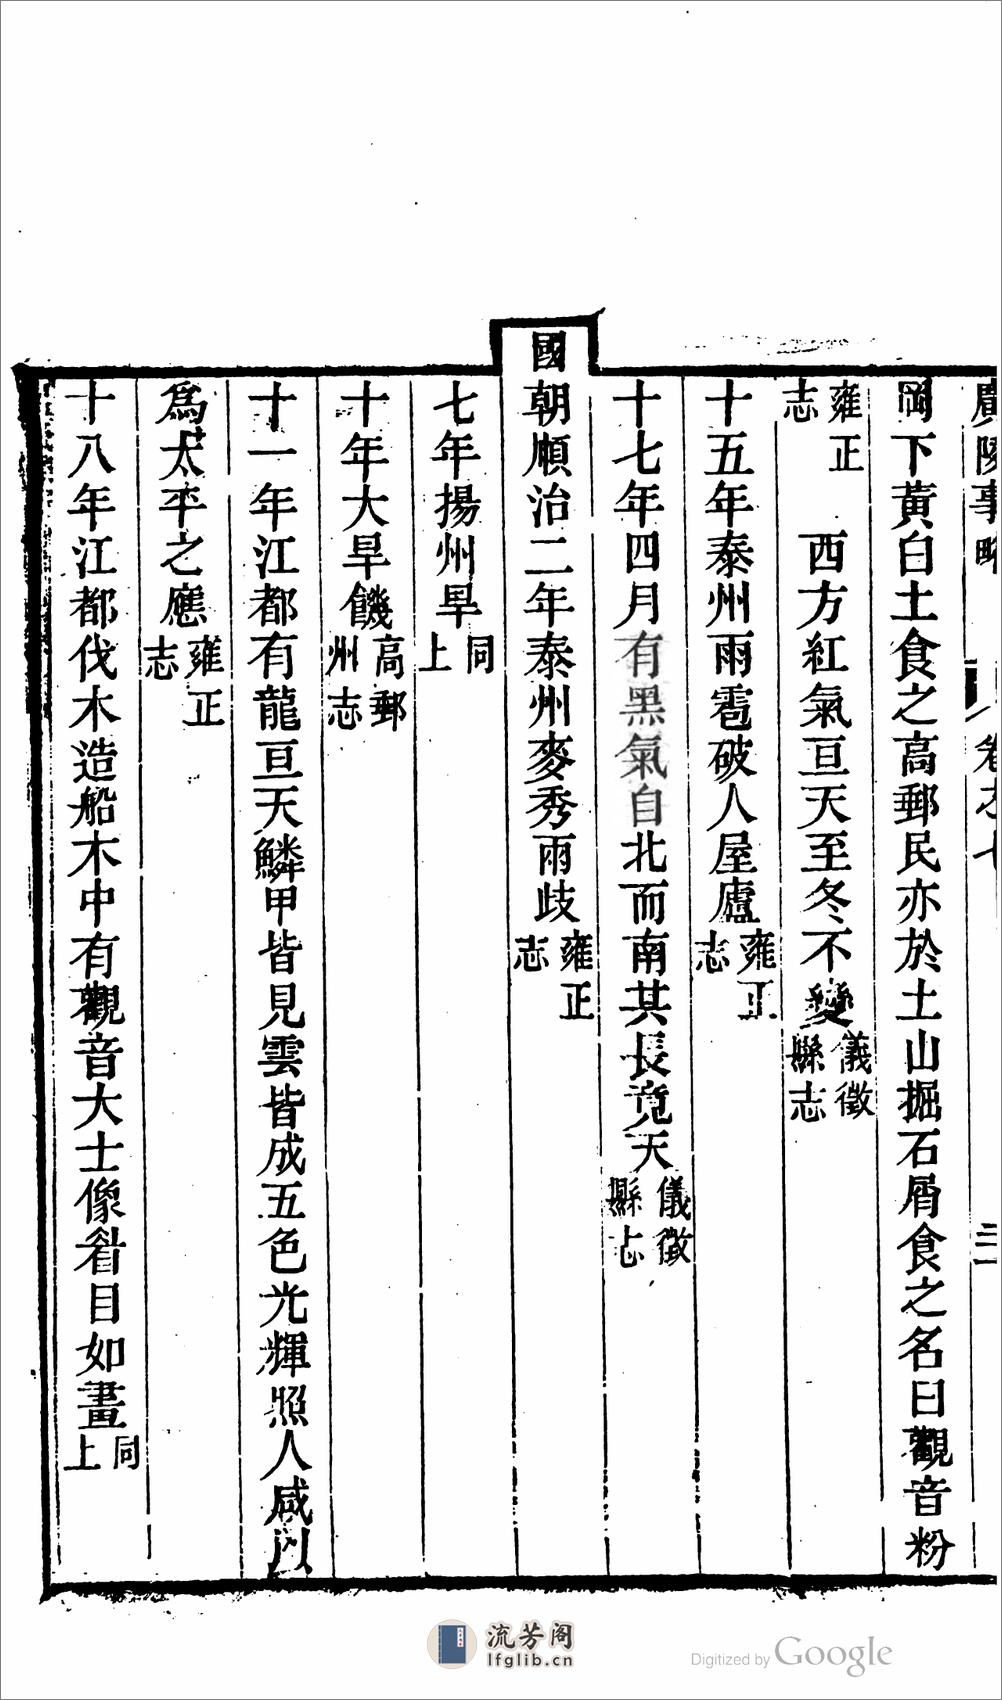 廣陵事略 卷之七
岡下黃白土食之高郵民亦於土山掘石屑食之名曰觀音粉
雍正志 西方紅氣亘天至冬不變儀徵縣志
十五年泰州雨雹破人屋廬雍正志
十七年四月有黑氣自北而南其長竟天儀徵縣志
國朝順治二年泰州麥秀兩歧雍正志
七年揚州旱同上
十年大旱饑高郵州志
十一年江都有龍亘天鱗甲皆見雲皆成五色光輝照人咸以
爲太平之應雍正志
十八年江都伐木造船木中有觀音大士像眉目如畫同上
流芳阁
lfglib.cn
Digitized by Google